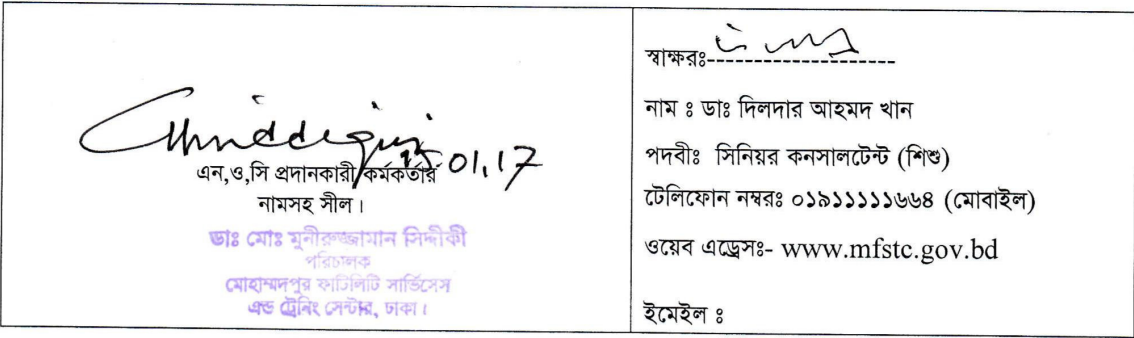 01.17
এন,ও,সি প্রদানকারী কর্মকর্তার
নামসহ সীল।
ডাঃ মোঃ মুনীরুজ্জামান সিদ্দীকী
পরিচালক
মোহাম্মদপুর ফার্টিলিটি সার্ভিসেস
এন্ড ট্রেনিং সেন্টার, ঢাকা।
স্বাক্ষরঃ--------------------
নাম ঃ ডাঃ দিলদার আহমদ খান
পদবীঃ সিনিয়র কনসালটেন্ট (শিশু)
টেলিফোন নম্বরঃ ০১৯১১১১১৬৬৪ (মোবাইল)
ওয়েব এড্রেসঃ- www.mfstc.gov.bd
ইমেইল ঃ